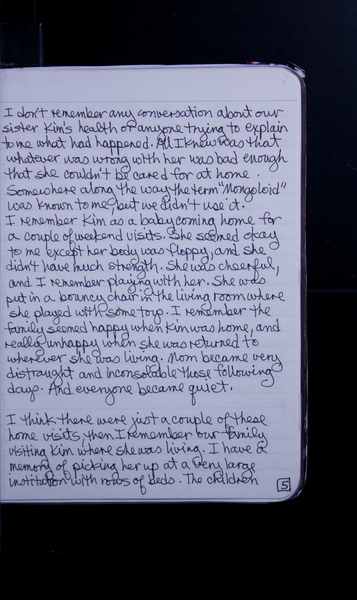 I don't remember any conversation about our
sister Kim's health or anyone trying to explain
to me what had happened. All I knew was that
whatever was wrong with her was bad enough
that she couldn't be cared for at home.
Somewhere along the way the term "Mongoloid"
was known to me, but we didn't use it.
I remember Kim as a baby coming home for
a couple of weekend visits. She seemed okay
to me except her body was floppy, and she
didn't have much strength. She was cheerful,
and I remember playing with her. She was
put in a bouncy chair in the living room where
she played with some toys. I remember the
family seemed happy when Kim was home, and
really unhappy when she was returned to
wherever she was living. Mom became very
distraught and inconsolable those following
days. And everyone became quiet.
I think there were just a couple of these
home visits, then I remember our family
visiting Kim where she was living. I have a
memory of picking her up at a very large
institution with rows of beds. The children
5